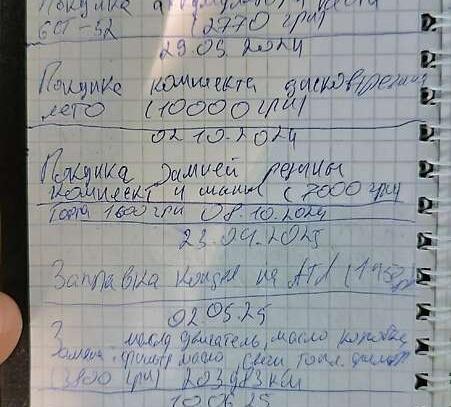 Покупка аккумулятора
6СТ-52 (2770 грн)
29.09.2024
Покупка комплекта дисков+резина
лето (10000 грн)
02.10.2024
Покупка зимней резины
комплект 4 шины (7000 грн)
1600 грн 08.10.2024
23.04.2025
Заправка кондера на АТЛ
02.05.25
Замена масла двигатель, масло коробка,
фильтр масло свечи топл. фильтр
(3800 грн) 203983 км
10.06.25